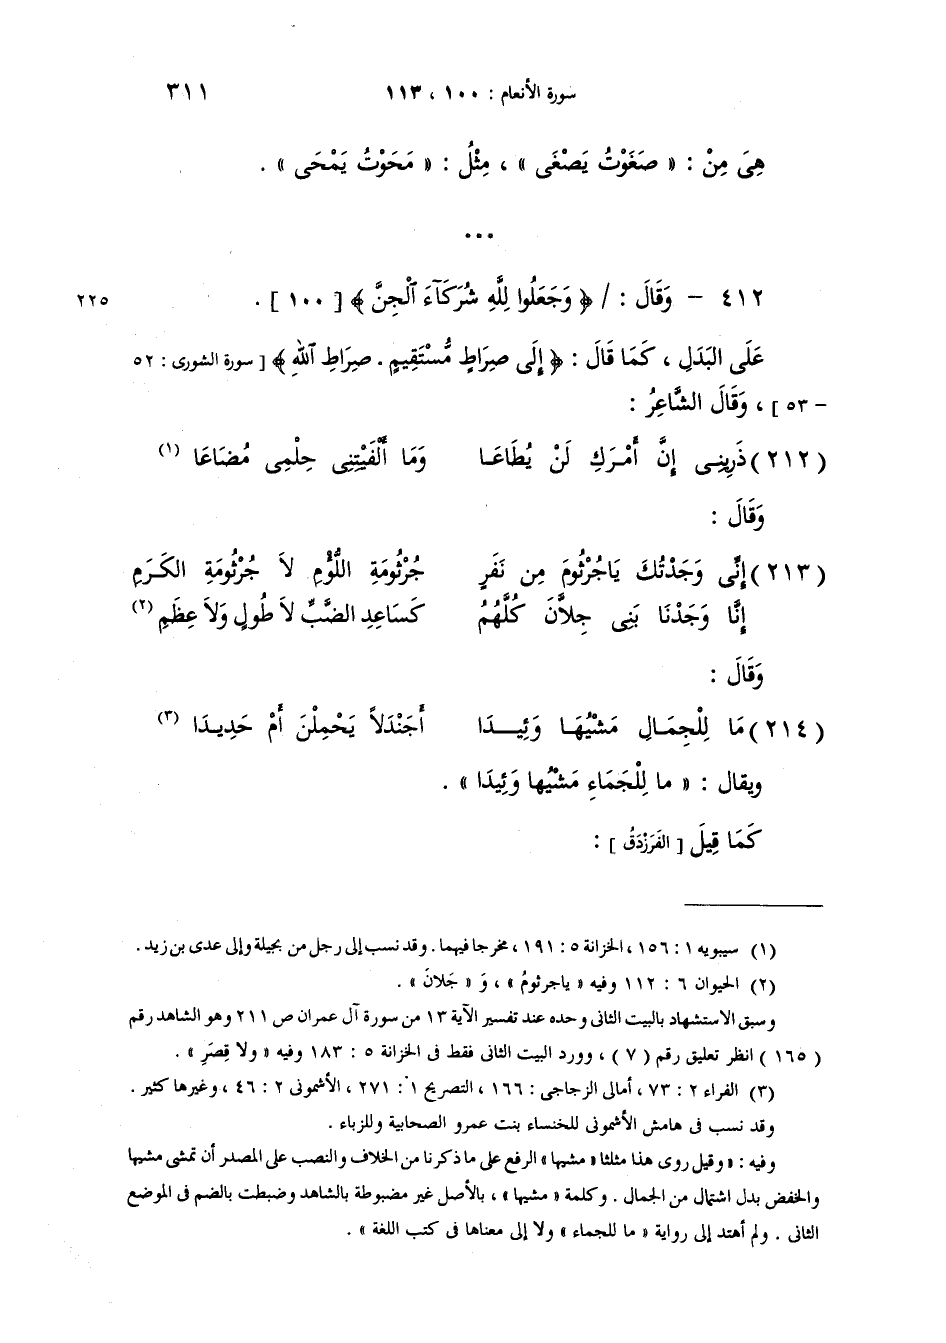 سورة الأنعام : ١٠٠ ، ١١٣ ٣١١
هِىَ مِنْ : « صَغَوْتُ يَصْغَى » ، مِثْلُ : « مَحَوْتُ يَمْحَى » .
...
٤١٢ – وَقَالَ : / ﴿ وَجَعَلُوا لِلَّهِ شُرَكَآءَ ٱلْجِنَّ ﴾ [ ١٠٠ ] . ٢٢٥
عَلَى البَدَلِ ، كَمَا قَالَ : ﴿ إِلَى صِرَاطٍ مُّسْتَقِيمٍ . صِرَاطِ ٱللَّهِ ﴾ [ سورة الشورى : ٥٢
– ٥٣ ] ، وَقَالَ الشَّاعِرُ :
(٢١٢) ذَرِينِى إِنَّ أَمْرَكِ لَنْ يُطَاعَا وَمَا أَلْفَيْتِنِى حِلْمِى مُضَاعَا (١)
وَقَالَ :
(٢١٣) إِنِّى وَجَدْتُكَ يَاجُرْثُومَ مِن نَفَرٍ جُرْثُومَةِ اللُّؤْمِ لاَ جُرْثُومَةِ الكَرَمِ
إِنَّا وَجَدْنَا بَنِى جِلاَّنَ كُلَّهُمُ كَسَاعِدِ الضَّبِّ لاَ طُولٍ وَلاَ عِظَمِ (٢)
وَقَالَ :
(٢١٤) مَا لِلْجِمَالِ مَشْيُهَا وَئِيدَا أَجَنْدَلاً يَحْمِلْنَ أَمْ حَدِيدَا (٣)
ويقال : « ما لِلْجَمَاءِ مَشْيُها وَئِيدَا » .
كَمَا قِيلَ [ الفَرَزْدَقُ ] :
(١) سيبويه ١ : ١٥٦ ، الخزانة ٥ : ١٩١ ، مخرجا فيهما . وقد نسب إلى رجل من بجيلة وإلى عدى بن زيد .
(٢) الحيوان ٦ : ١١٢ وفيه « ياجرثومُ » ، وَ « جَلانَ » .
وسبق الاستشهاد بالبيت الثانى وحده عند تفسير الآية ١٣ من سورة آل عمران ص ٢١١ وهو الشاهد رقم
( ١٦٥ ) انظر تعليق رقم ( ٧ ) ، وورد البيت الثانى فقط فى الخزانة ٥ : ١٨٣ وفيه « ولا قِصَرِ » .
(٣) الفراء ٢ : ٧٣ ، أمالى الزجاجى : ١٦٦ ، التصريح ١ : ٢٧١ ، الأشمونى ٢ : ٤٦ ، وغيرها كثير .
وقد نسب فى هامش الأشمونى للخنساء بنت عمرو الصحابية وللزباء .
وفيه : « وقيل روى هذا مثلثا « مشيها » الرفع على ما ذكرنا من الخلاف والنصب على المصدر أن تمشى مشيها
والخفض بدل اشتمال من الجمال . وكلمة « مشيها » ، بالأصل غير مضبوطة بالشاهد وضبطت بالضم فى الموضع
الثانى . ولم أهتد إلى رواية « ما للجماء » ولا إلى معناها فى كتب اللغة » .